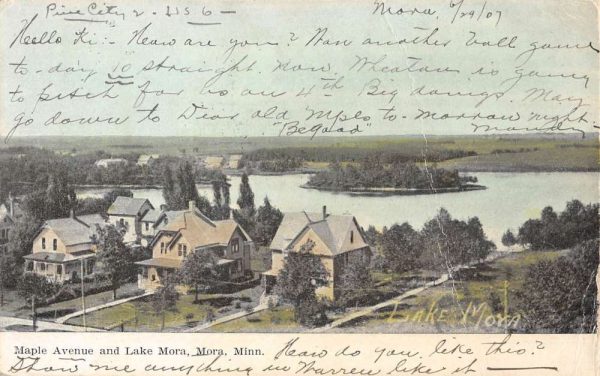 Pine City 2 - US 6 -
Mora, 6/29/07
Hello Hi :- How are you? Won another ball game
to-day 10 straight now. Wheaton is going
to pitch for us on 4th Big doings. May
go down to Dear old Mpls to-morrow night -
"Begood" Mandy
LAKE MORA
Maple Avenue and Lake Mora, Mora, Minn. How do you like this?
Show me anything in Warren like it —